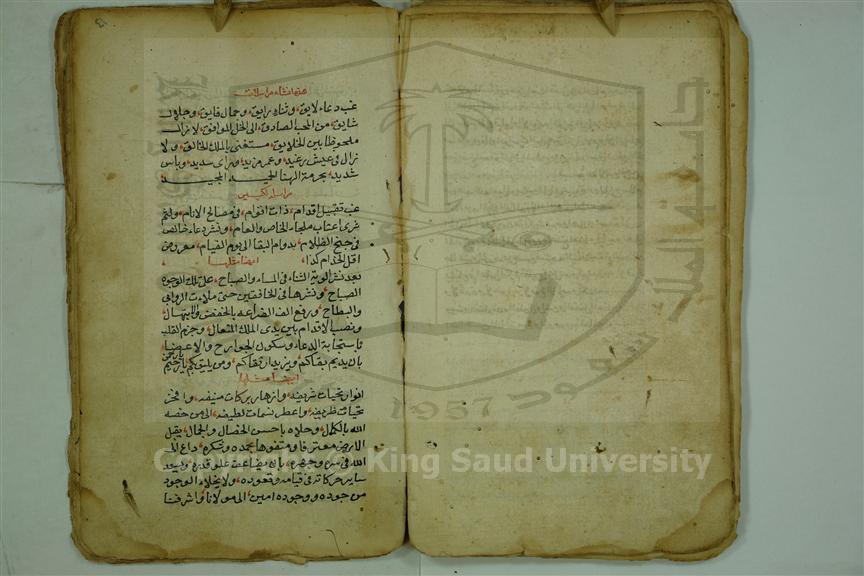 هذه انشاء مراسلات
غب دعاء لايق، وثناء رايق، وجمال فايق، وجلال
شايق، من المحب الصادق، الى الخل الموافق، لا زال
ملحوظا بين الخلايق، مستغني بالملك الخالق، ولا
زال في عيش رغيد، وعمر مزيد، وراى سديد، وباس
شديد، بحرمة الهنا الحميد المجيد،
غب تقبيل اقدام، ذات اقوام، في مصالح الانام، ولثم
ثرى اعتاب ملجاء الخاص والعام، ونشر دعاء خالص
في جنح الظلام، بدوام البقا الى يوم القيام، معروض
اقل الخدام كذا، ايضا مثلها
بعد نشر الوية الثناء في المساء والصباح، على تلك الوجوه
الصباح، ونشرها في الخافقين حتى ملاءت الروابي
والبطاح، ورفع الف الضراعه بالخفض والابتهال،
ونصب الاقدام بين يدى الملك المتعال، وجزم القلب
باستجابة الدعاء وسكون الجوارح والاعضا،
بان يديم بقاكم، ويزيد ارتقاكم، ومن يليق بكم
ايضا مثلها
انوار تحيات شريفه، وازهار بركات منيفه، وافخر
تحيات ظريفه، واعطر نسمات لطيفه، الى من خصه
الله بالكمال، وحلاه باحسن الخصال والجمال، يقبل
الارض معترفا ومتفوها بحمده وشكره، داع الى
الله في سره وجهره، بان يضاعف علو قدره، ويسعد
ساير حركاته في قيامه وقعوده، ولا يخلاء الوجود
من جوده ووجوده امين، الى مولانا واشرفنا
جامعة الملك سعود
1957
Copyright © King Saud University